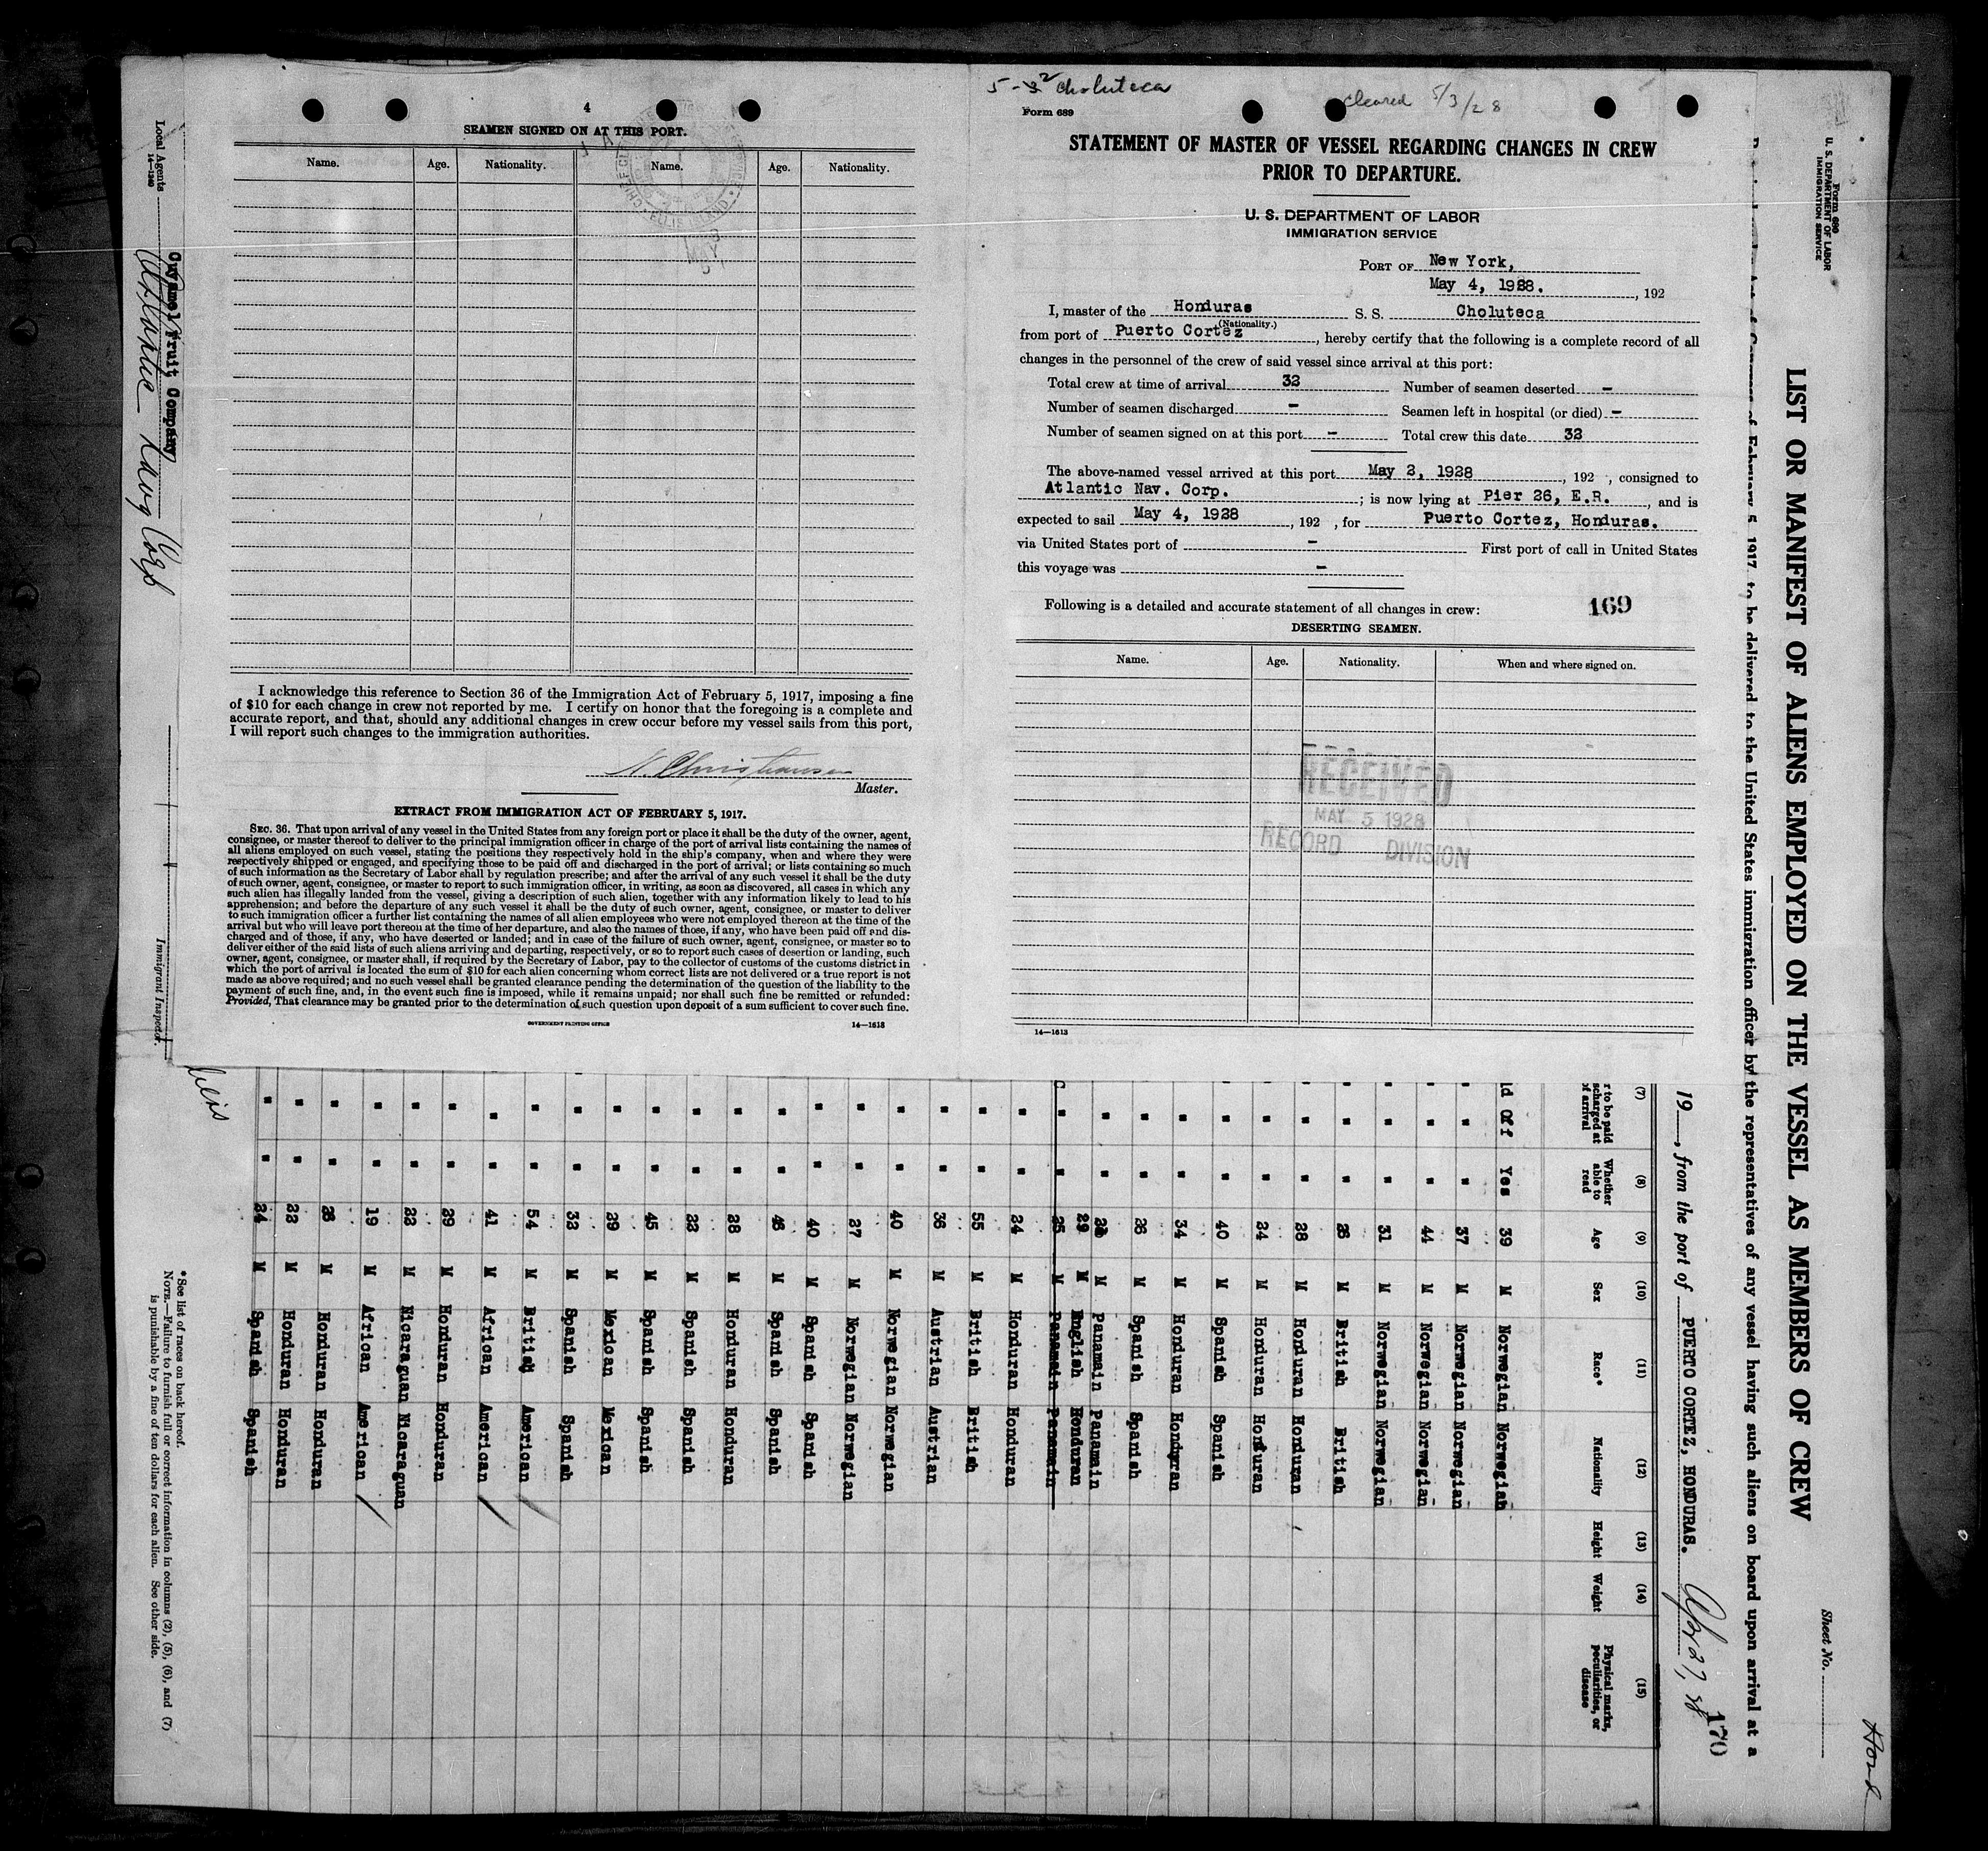 4
SEAMEN SIGNED ON AT THIS PORT.
Name. Age. Nationality. Name. Age. Nationality.
I acknowledge this reference to Section 36 of the Immigration Act of February 5, 1917, imposing a fine
of $10 for each change in crew not reported by me. I certify on honor that the foregoing is a complete and
accurate report, and that, should any additional changes in crew occur before my vessel sails from this port,
I will report such changes to the immigration authorities.
N. Christiansen
Master.
EXTRACT FROM IMMIGRATION ACT OF FEBRUARY 5, 1917.
SEC. 36. That upon arrival of any vessel in the United States from any foreign port or place it shall be the duty of the owner, agent,
consignee, or master thereof to deliver to the principal immigration officer in charge of the port of arrival lists containing the names of
all aliens employed on such vessel, stating the positions they respectively hold in the ship's company, when and where they were
respectively shipped or engaged, and specifying those to be paid off and discharged in the port of arrival; or lists containing so much
of such information as the Secretary of Labor shall by regulation prescribe; and after the arrival of any such vessel it shall be the duty
of such owner, agent, consignee, or master to report to such immigration officer, in writing, as soon as discovered, all cases in which any
such alien has illegally landed from the vessel, giving a description of such alien, together with any information likely to lead to his
apprehension; and before the departure of any such vessel it shall be the duty of such owner, agent, consignee, or master to deliver
to such immigration officer a further list containing the names of all alien employees who were not employed thereon at the time of the
arrival but who will leave port thereon at the time of her departure, and also the names of those, if any, who have been paid off and dis-
charged and of those, if any, who have deserted or landed; and in case of the failure of such owner, agent, consignee, or master so to
deliver either of the said lists of such aliens arriving and departing, respectively, or so to report such cases of desertion or landing, such
owner, agent, consignee, or master shall, if required by the Secretary of Labor, pay to the collector of customs of the customs district in
which the port of arrival is located the sum of $10 for each alien concerning whom correct lists are not delivered or a true report is not
made as above required; and no such vessel shall be granted clearance pending the determination of the question of the liability to the
payment of such fine, and, in the event such fine is imposed, while it remains unpaid; nor shall such fine be remitted or refunded:
Provided, That clearance may be granted prior to the determination of such question upon deposit of a sum sufficient to cover such fine.
GOVERNMENT PRINTING OFFICE 14—1613
5-2 Choluteca
cleared 5/3/28
Form 689
STATEMENT OF MASTER OF VESSEL REGARDING CHANGES IN CREW
PRIOR TO DEPARTURE.
U. S. DEPARTMENT OF LABOR
IMMIGRATION SERVICE
PORT OF New York,
May 4, 1928. , 192
I, master of the Honduras S. S. Choluteca
(Nationality.)
from port of Puerto Cortez, hereby certify that the following is a complete record of all
changes in the personnel of the crew of said vessel since arrival at this port:
Total crew at time of arrival 32 Number of seamen deserted -
Number of seamen discharged - Seamen left in hospital (or died) -
Number of seamen signed on at this port - Total crew this date 32
The above-named vessel arrived at this port May 2, 1928, 192 , consigned to
Atlantic Nav. Corp. ; is now lying at Pier 26, E.R. , and is
expected to sail May 4, 1928 , 192 , for Puerto Cortez, Honduras.
via United States port of - First port of call in United States
this voyage was -
Following is a detailed and accurate statement of all changes in crew: 169
DESERTING SEAMEN.
Name. Age. Nationality. When and where signed on.
RECEIVED
MAY 5 1928
RECORD DIVISION
14—1613
Form 689
U. S. DEPARTMENT OF LABOR
IMMIGRATION SERVICE
Sheet No.
Hond
LIST OR MANIFEST OF ALIENS EMPLOYED ON THE VESSEL AS MEMBERS OF CREW
of February 5, 1917, to be delivered to the United States immigration officer by the representatives of any vessel having such aliens on board upon arrival at a
19 , from the port of PUERTO CORTEZ, HONDURAS. Apr 27, 28
170
(7) (8) (9) (10) (11) (12) (13) (14) (15)
r to be paid scharged at of arrival Whether able to read Age Sex Race* Nationality Height Weight Physical marks, peculiarities, or disease
ld Off Yes 39 M Norwegian Norwegian
" " 37 M Norwegian Norwegian
" " 44 M Norwegian Norwegian
" " 31 M Norwegian Norwegian
" " 26 M British British
" " 28 M Honduran Honduran
" " 24 M Honduran Honduran
" " 40 M Spanish Spanish
" " 34 M Honduran Honduran
" " 26 M Spanish Spanish
" " M Panamain Panamain
29 M English Honduran
" " 25 M Panamain Panamain
" " 24 M Honduran Honduran
" " 55 M British British
" " 36 M Austrian Austrian
" " 40 M Norwegian Norwegian
" " 27 M Norwegian Norwegian
" " 40 M Spanish Spanish
" " 46 M Spanish Spanish
" " 28 M Honduran Honduran
" " 22 M Spanish Spanish
" " 45 M Spanish Spanish
" " 29 M Mexican Mexican
" " 32 M Spanish Spanish
" " 54 M British American
" " 41 M African American
" " 29 M Honduran Honduran
" " 22 M Nicaraguan Nicaraguan
" " 19 M African American
" " 26 M Honduran Honduran
" " 22 M Honduran Honduran
" " 24 M Spanish Spanish
* See list of races on back hereof.
NOTE.—Failure to furnish full or correct information in columns (2), (5), (6), and (7)
is punishable by a fine of ten dollars for each alien. See other side.
Local Agents
14—1240
Cuyamel Fruit Company
Atlantic Navg Corp
Immigrant Inspector.